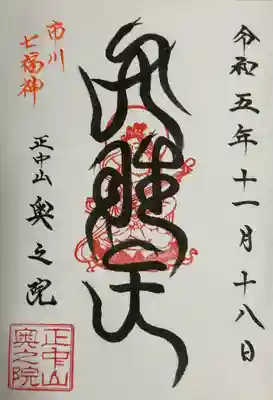 令和五年十一月十八日
弁財天
市川
七福神
正中山
奥之院
正中山
奥之院